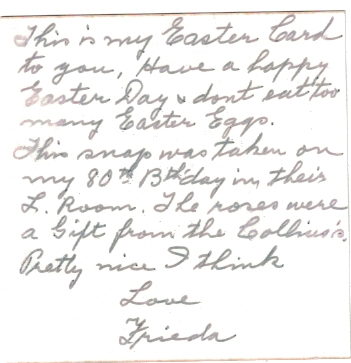 This is my Easter Card
to you, Have a happy
Easter Day & dont eat too
many Easter Eggs.
This snap was taken on
my 80th B'thday in their
L. Room. The roses were
a Gift from the Collins's.
Pretty nice I think
Love
Frieda